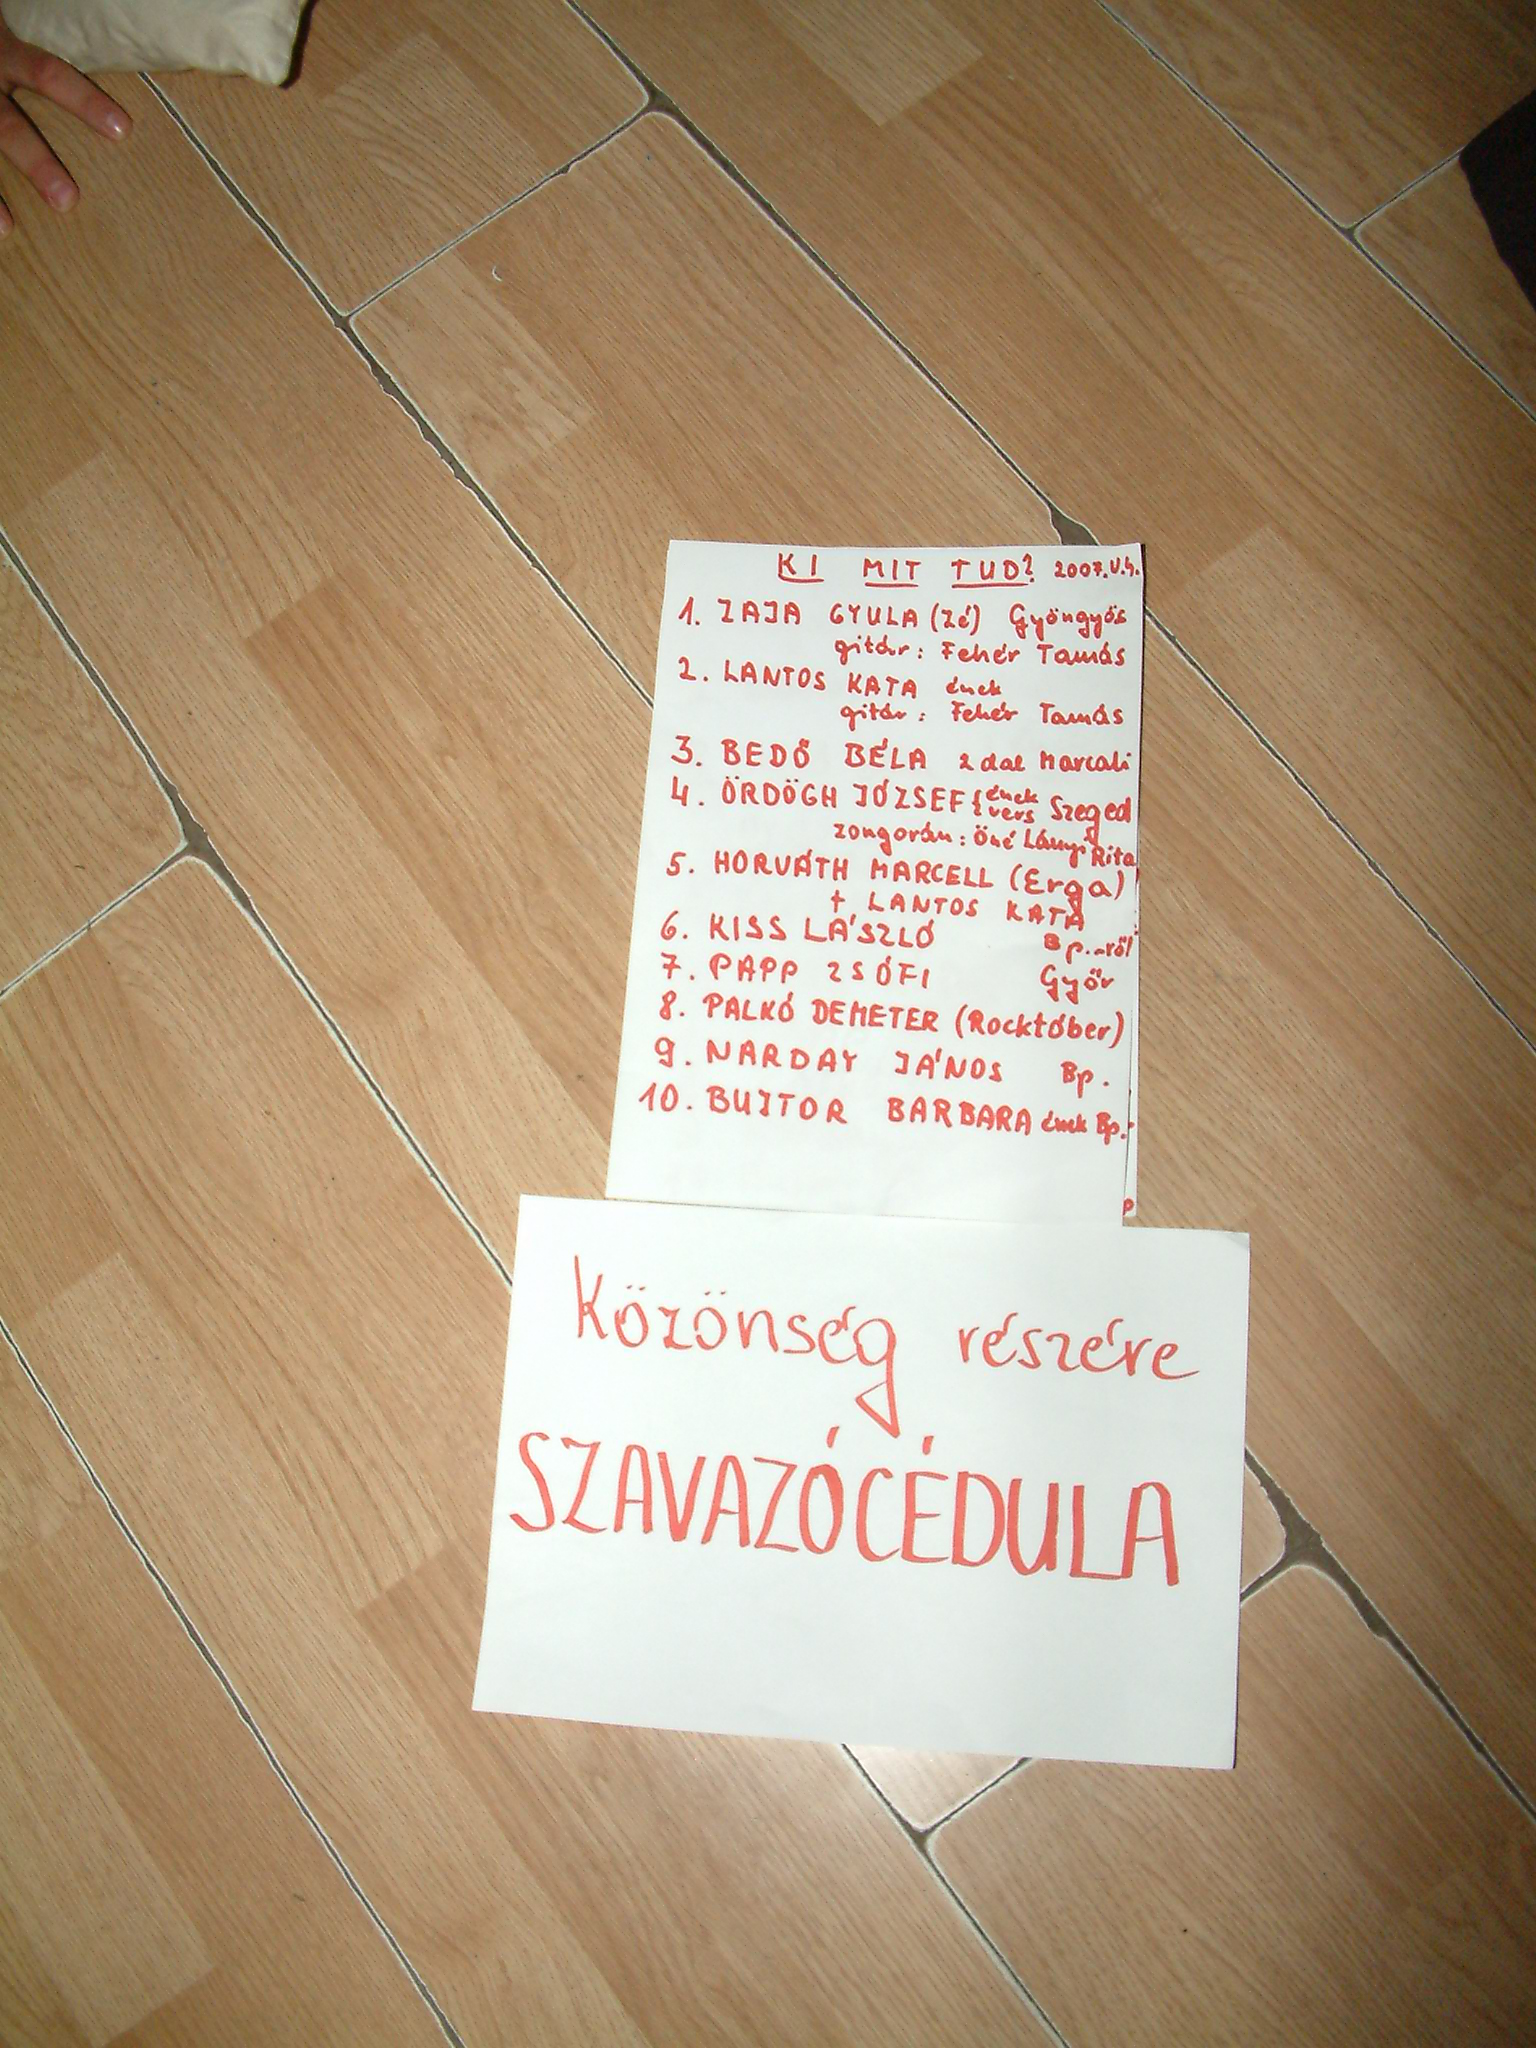 KI MIT TUD? 2007.V.4.
1. ZAJA GYULA (Zé) Gyöngyös
gitár: Fehér Tamás
2. LANTOS KATA ének
gitár: Fehér Tamás
3. BEDŐ BÉLA 2 dal Marcali
4. ÖRDÖGH JÓZSEF { ének vers Szeged
zongorán: Öné Lányi Rita
5. HORVÁTH MARCELL (Erga)
+ LANTOS KATA
6. KISS LÁSZLÓ Bp.-ről
7. PAPP ZSÓFI Győr
8. PALKÓ DEMETER (Rocktóber)
9. NARDAY JÁNOS Bp.
10. BUJTOR BARBARA ének Bp.
Közönség részére
SZAVAZÓCÉDULA